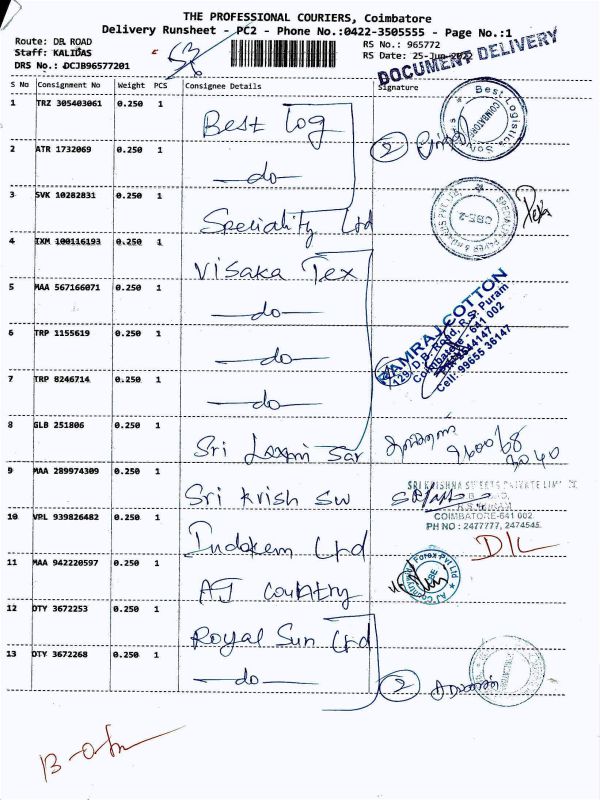 THE PROFESSIONAL COURIERS, Coimbatore
Delivery Runsheet - PC2 - Phone No.:0422-3505555 - Page No.:1
Route: DB ROAD
RS No.: 965772
Staff: KALIDAS
RS Date: 25-Jun-2022
DRS No.: DCJB96577201
DOCUMENT DELIVERY
S No Consignment No Weight PCS Consignee Details Signature
1 TRZ 305403061 0.250 1 Best Log
Best Logistics
COIMBATORE
2 ATR 1732069 0.250 1 —do— 2
3 SVK 10282831 0.250 1 Speciality Ltd
CBE-2
4 IXM 100116193 0.250 1 Visaka Tex
5 MAA 567166071 0.250 1 —do—
RAMRAJ COTTON
129, D.B. Road, R.S. Puram
Coimbatore - 641 002
Cell: 99655 36147
6 TRP 1155619 0.250 1 —do—
7 TRP 8246714 0.250 1 —do—
8 GLB 251806 0.250 1 Sri Laxmi Sar
9 MAA 289974309 0.250 1 Sri Krish sw
SRI KRISHNA SWEETS PRIVATE LIMITED
COIMBATORE-641 002
PH NO : 2477777, 2474545.
10 VPL 939826482 0.250 1 Indokem Ltd
D/L
11 MAA 942220597 0.250 1 AJ Country
AJ Country Forex Pvt Ltd
CBE
12 DTY 3672253 0.250 1 Royal Sun Ltd
13 DTY 3672268 0.250 1 —do— 2